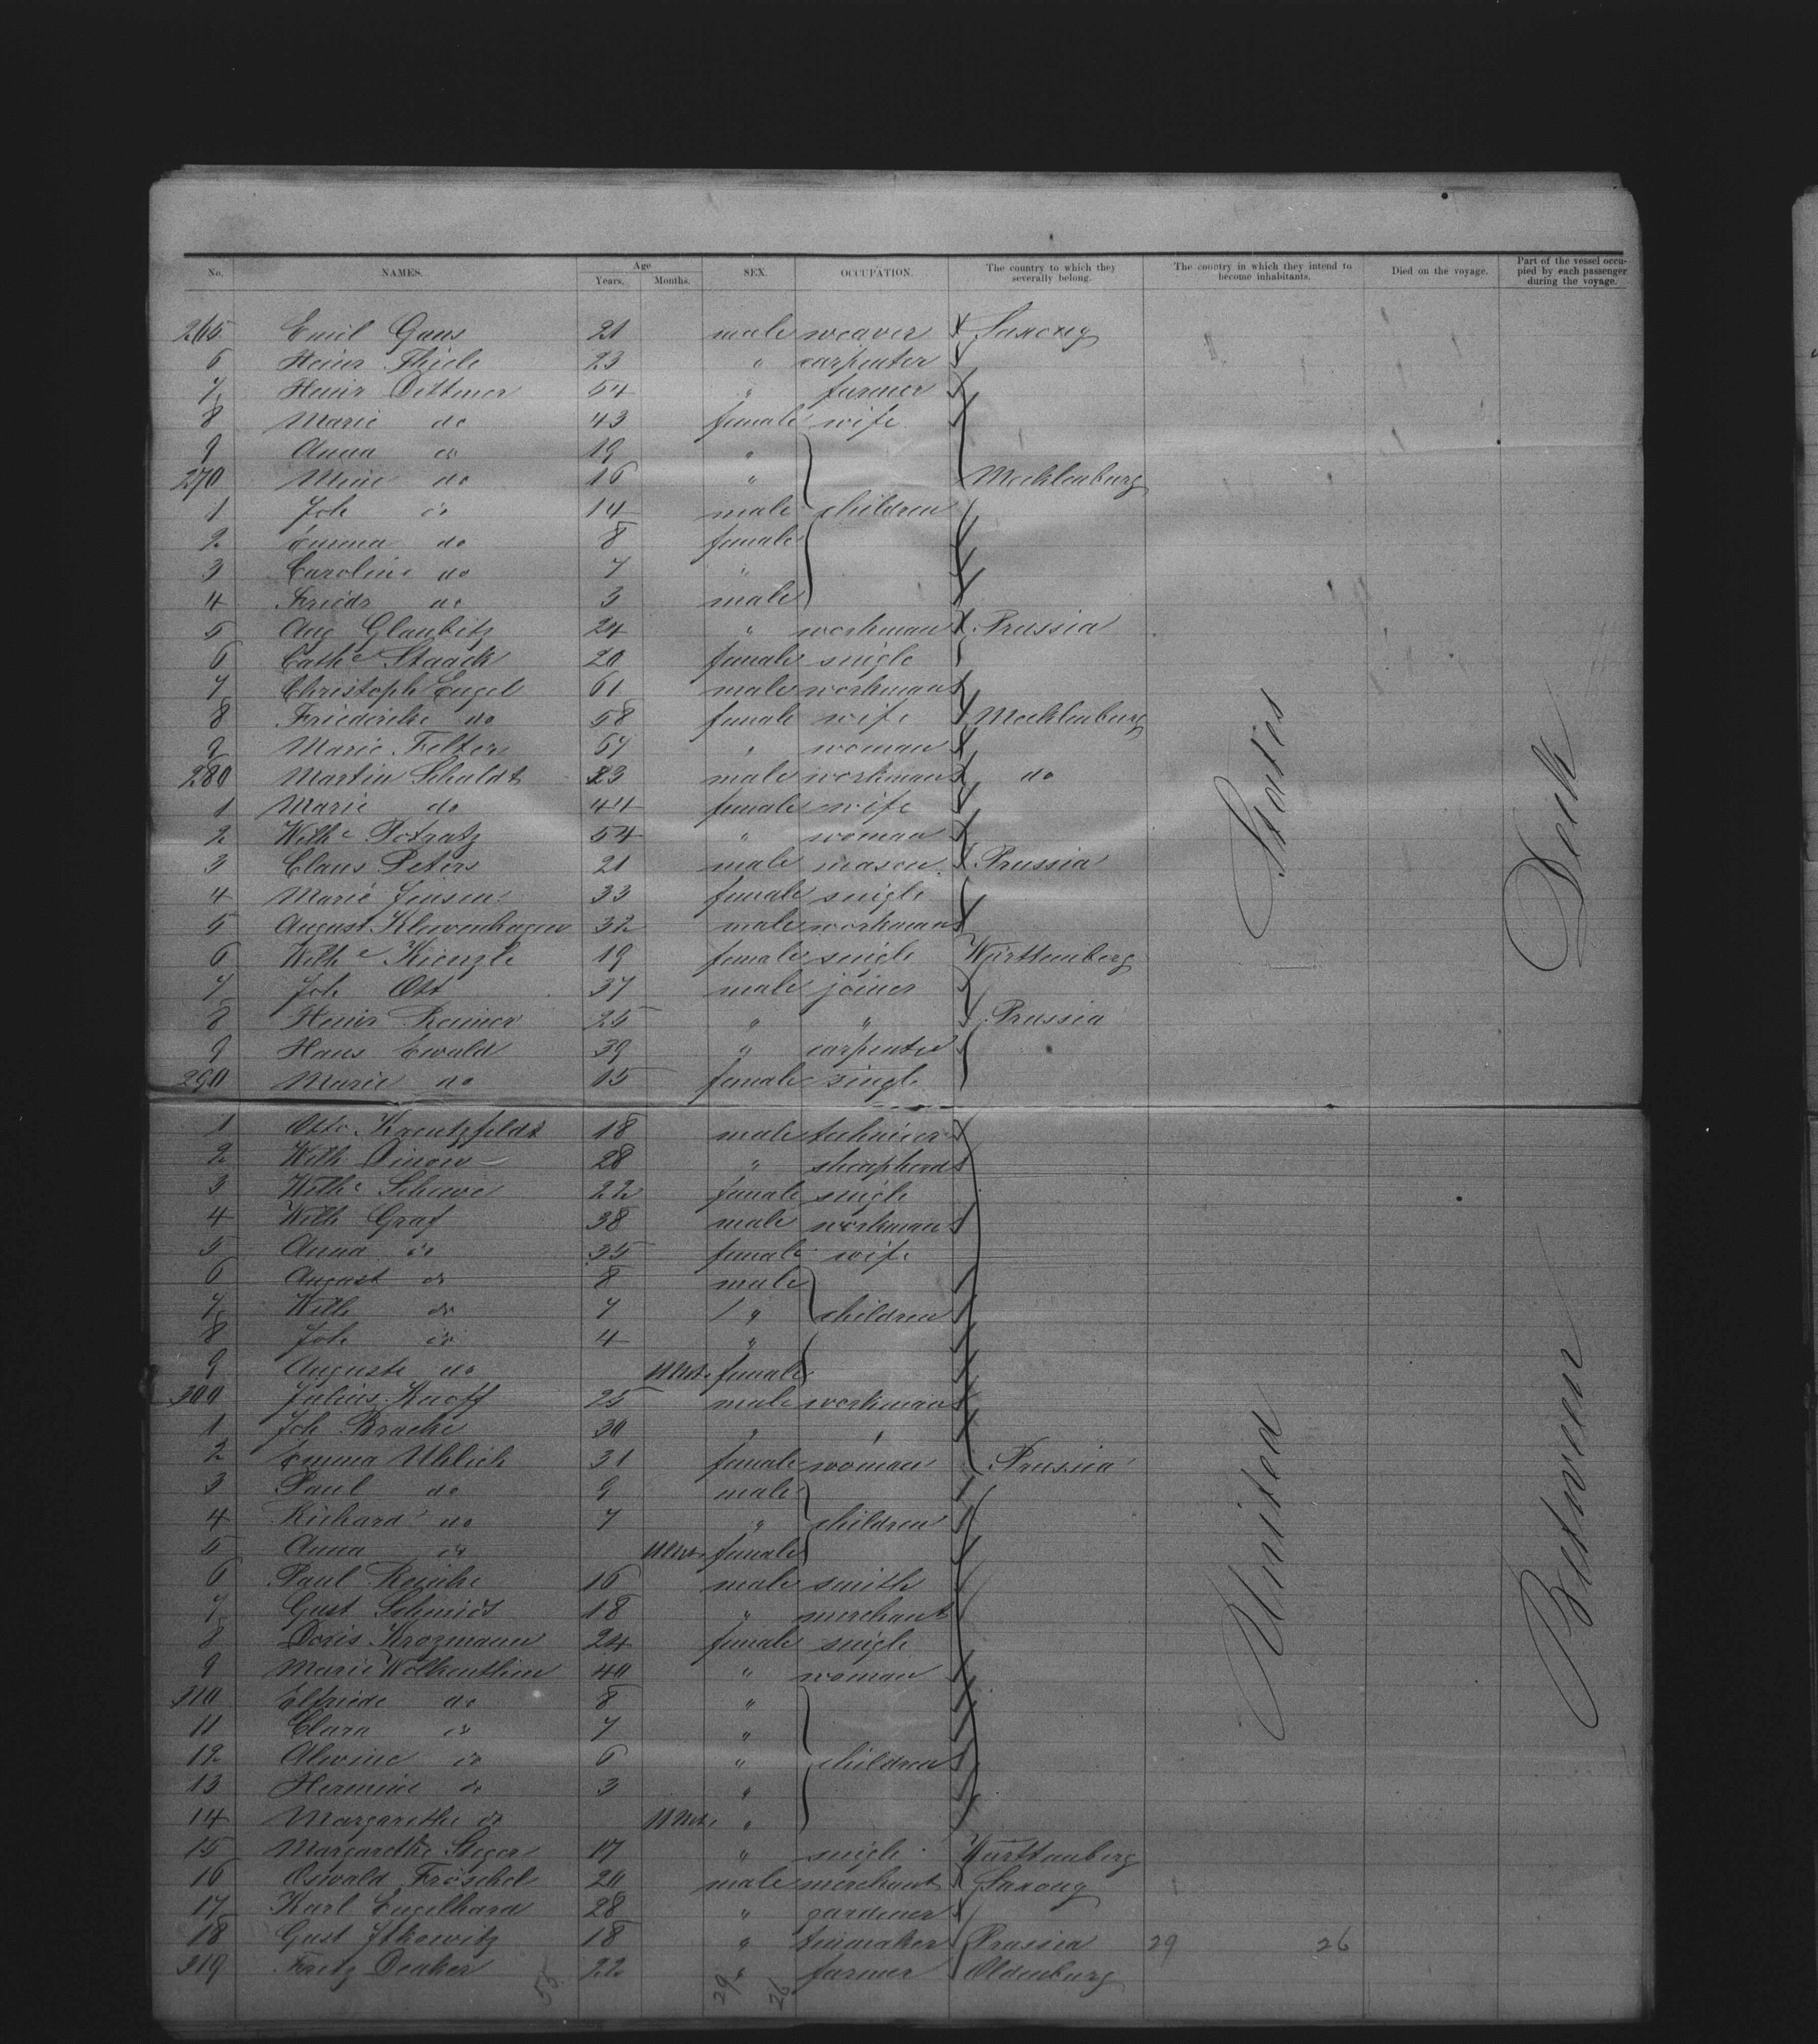 No. NAMES. Age Years. Months. SEX. OCCUPATION. The country to which they severally belong. The country in which they intend to become inhabitants. Died on the voyage. Part of the vessel occupied by each passenger during the voyage.
265 Emil Gaus 21 male weaver Saxony
6 Heinr Thiele 23 " carpenter
7 Heinr Dittmer 54 " farmer
8 Marie do 43 female wife
9 Anna do 19 "
270 Mine do 16 " Mecklenburg
1 Joh do 14 male children
2 Emma do 8 female
3 Caroline do 7 "
4 Friedr do 3 male
5 Aug Glaubitz 24 " workman Prussia
6 Cathe Staack 20 female single
7 Christoph Engel 61 male workman
8 Friederike do 58 female wife Mecklenburg
9 Marie Felter 57 " woman
280 Martin Schuldt 23 male workman do
1 Marie do 44 female wife
2 Wilhe Potratz 54 " woman
3 Claus Peters 21 male mason Prussia
4 Marie Jensen 33 female single
5 August Klewenhagen 32 male workman
6 Wilhe Kienzle 19 female single Württemberg
7 Joh Ott 37 male joiner
8 Heinr Reimer 25 " " Prussia
9 Hans Ewald 39 " carpenter
290 Marie do 15 female single
1 Otto Kreutzfeldt 18 male
2 Wilh Dinow 28 " sheapherd
3 Wilhe Schewe 22 female single
4 Wilh Graf 38 male workman
5 Anna do 35 female wife
6 August do 8 male
7 Wilh do 7 " children
8 Joh do 4 "
9 Auguste do 11 Mts female
300 Julius Knoff 25 male workman
1 Joh Bracke 30 " "
2 Emma Uhlich 31 female woman Prussia
3 Paul do 9 male
4 Richard do 7 " children
5 Anna do 11 Mts female
6 Paul Reinke 16 male smith
7 Gust Schmidt 18 " merchant
8 Doris Krozmann 24 female single
9 Marie Wolkenthin 40 " woman
310 Elfriede do 8 "
11 Clara do 7 "
12 Alwine do 6 " children
13 Hermine do 3 "
14 Margarethe do 11 Mts "
15 Margarethe Steger 17 " single Württemberg
16 Oswald Fröschel 20 male merchant Saxony
17 Karl Engelhard 28 " gardener
18 Gust Itkowitz 18 " Prussia 29 26
319 Fritz Deaker 22 " farmer Oldenburg
55 29 26
United States
Between Deck